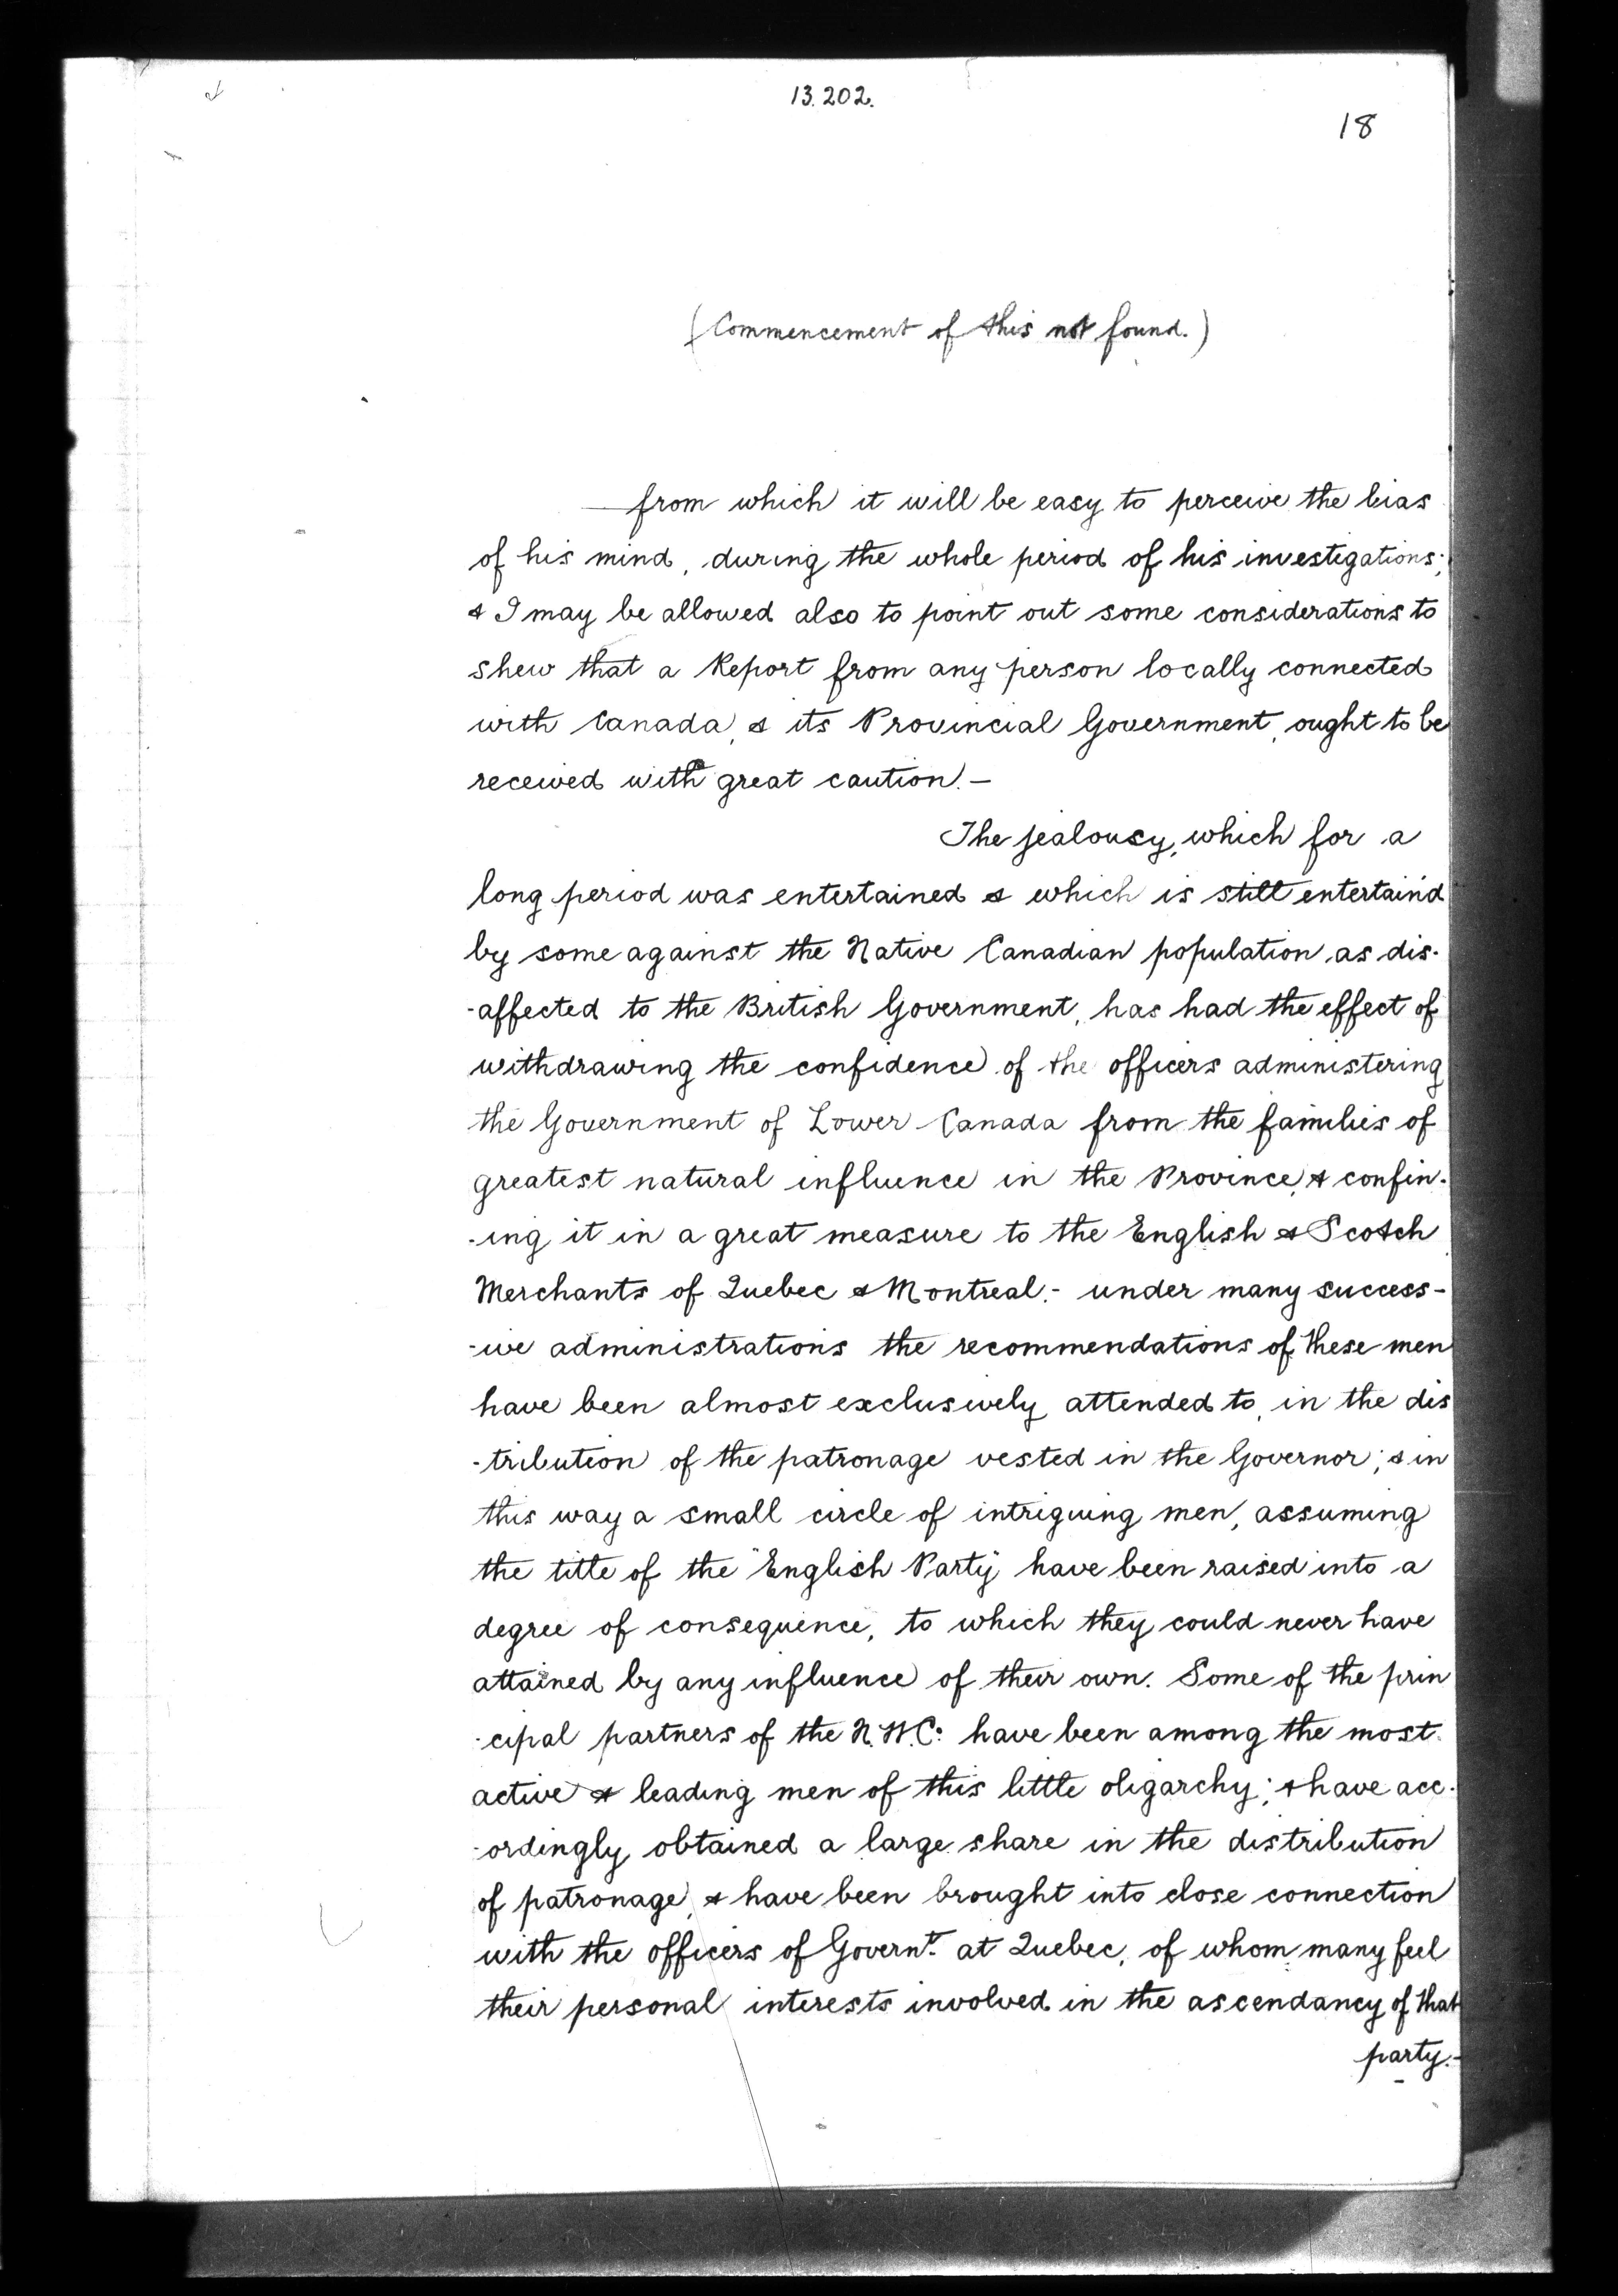 13.202.
18
(Commencement of this not found.)
—from which it will be easy to perceive the bias
of his mind, during the whole period of his investigations;
& I may be allowed also to point out some considerations to
shew that a Report from any person locally connected
with Canada, & its Provincial Government, ought to be
received with great caution.—
The jealousy, which for a
long period was entertained & which is still entertain'd
by some against the Native Canadian population, as dis-
-affected to the British Government, has had the effect of
withdrawing the confidence of the officers administering
the Government of Lower Canada from the families of
greatest natural influence in the Province, & confin-
-ing it in a great measure to the English & Scotch
Merchants of Quebec & Montreal:- under many success-
-ive administrations the recommendations of these men
have been almost exclusively attended to, in the dis
-tribution of the patronage vested in the Governor; & in
this way a small circle of intriguing men, assuming
the title of the "English Party" have been raised into a
degree of consequence, to which they could never have
attained by any influence of their own. Some of the prin
-cipal partners of the N.W.Co: have been among the most
active & leading men of this little oligarchy; & have acc-
-ordingly obtained a large share in the distribution
of patronage, & have been brought into close connection
with the officers of Governt. at Quebec, of whom many feel
their personal interests involved in the ascendancy of that
party.-